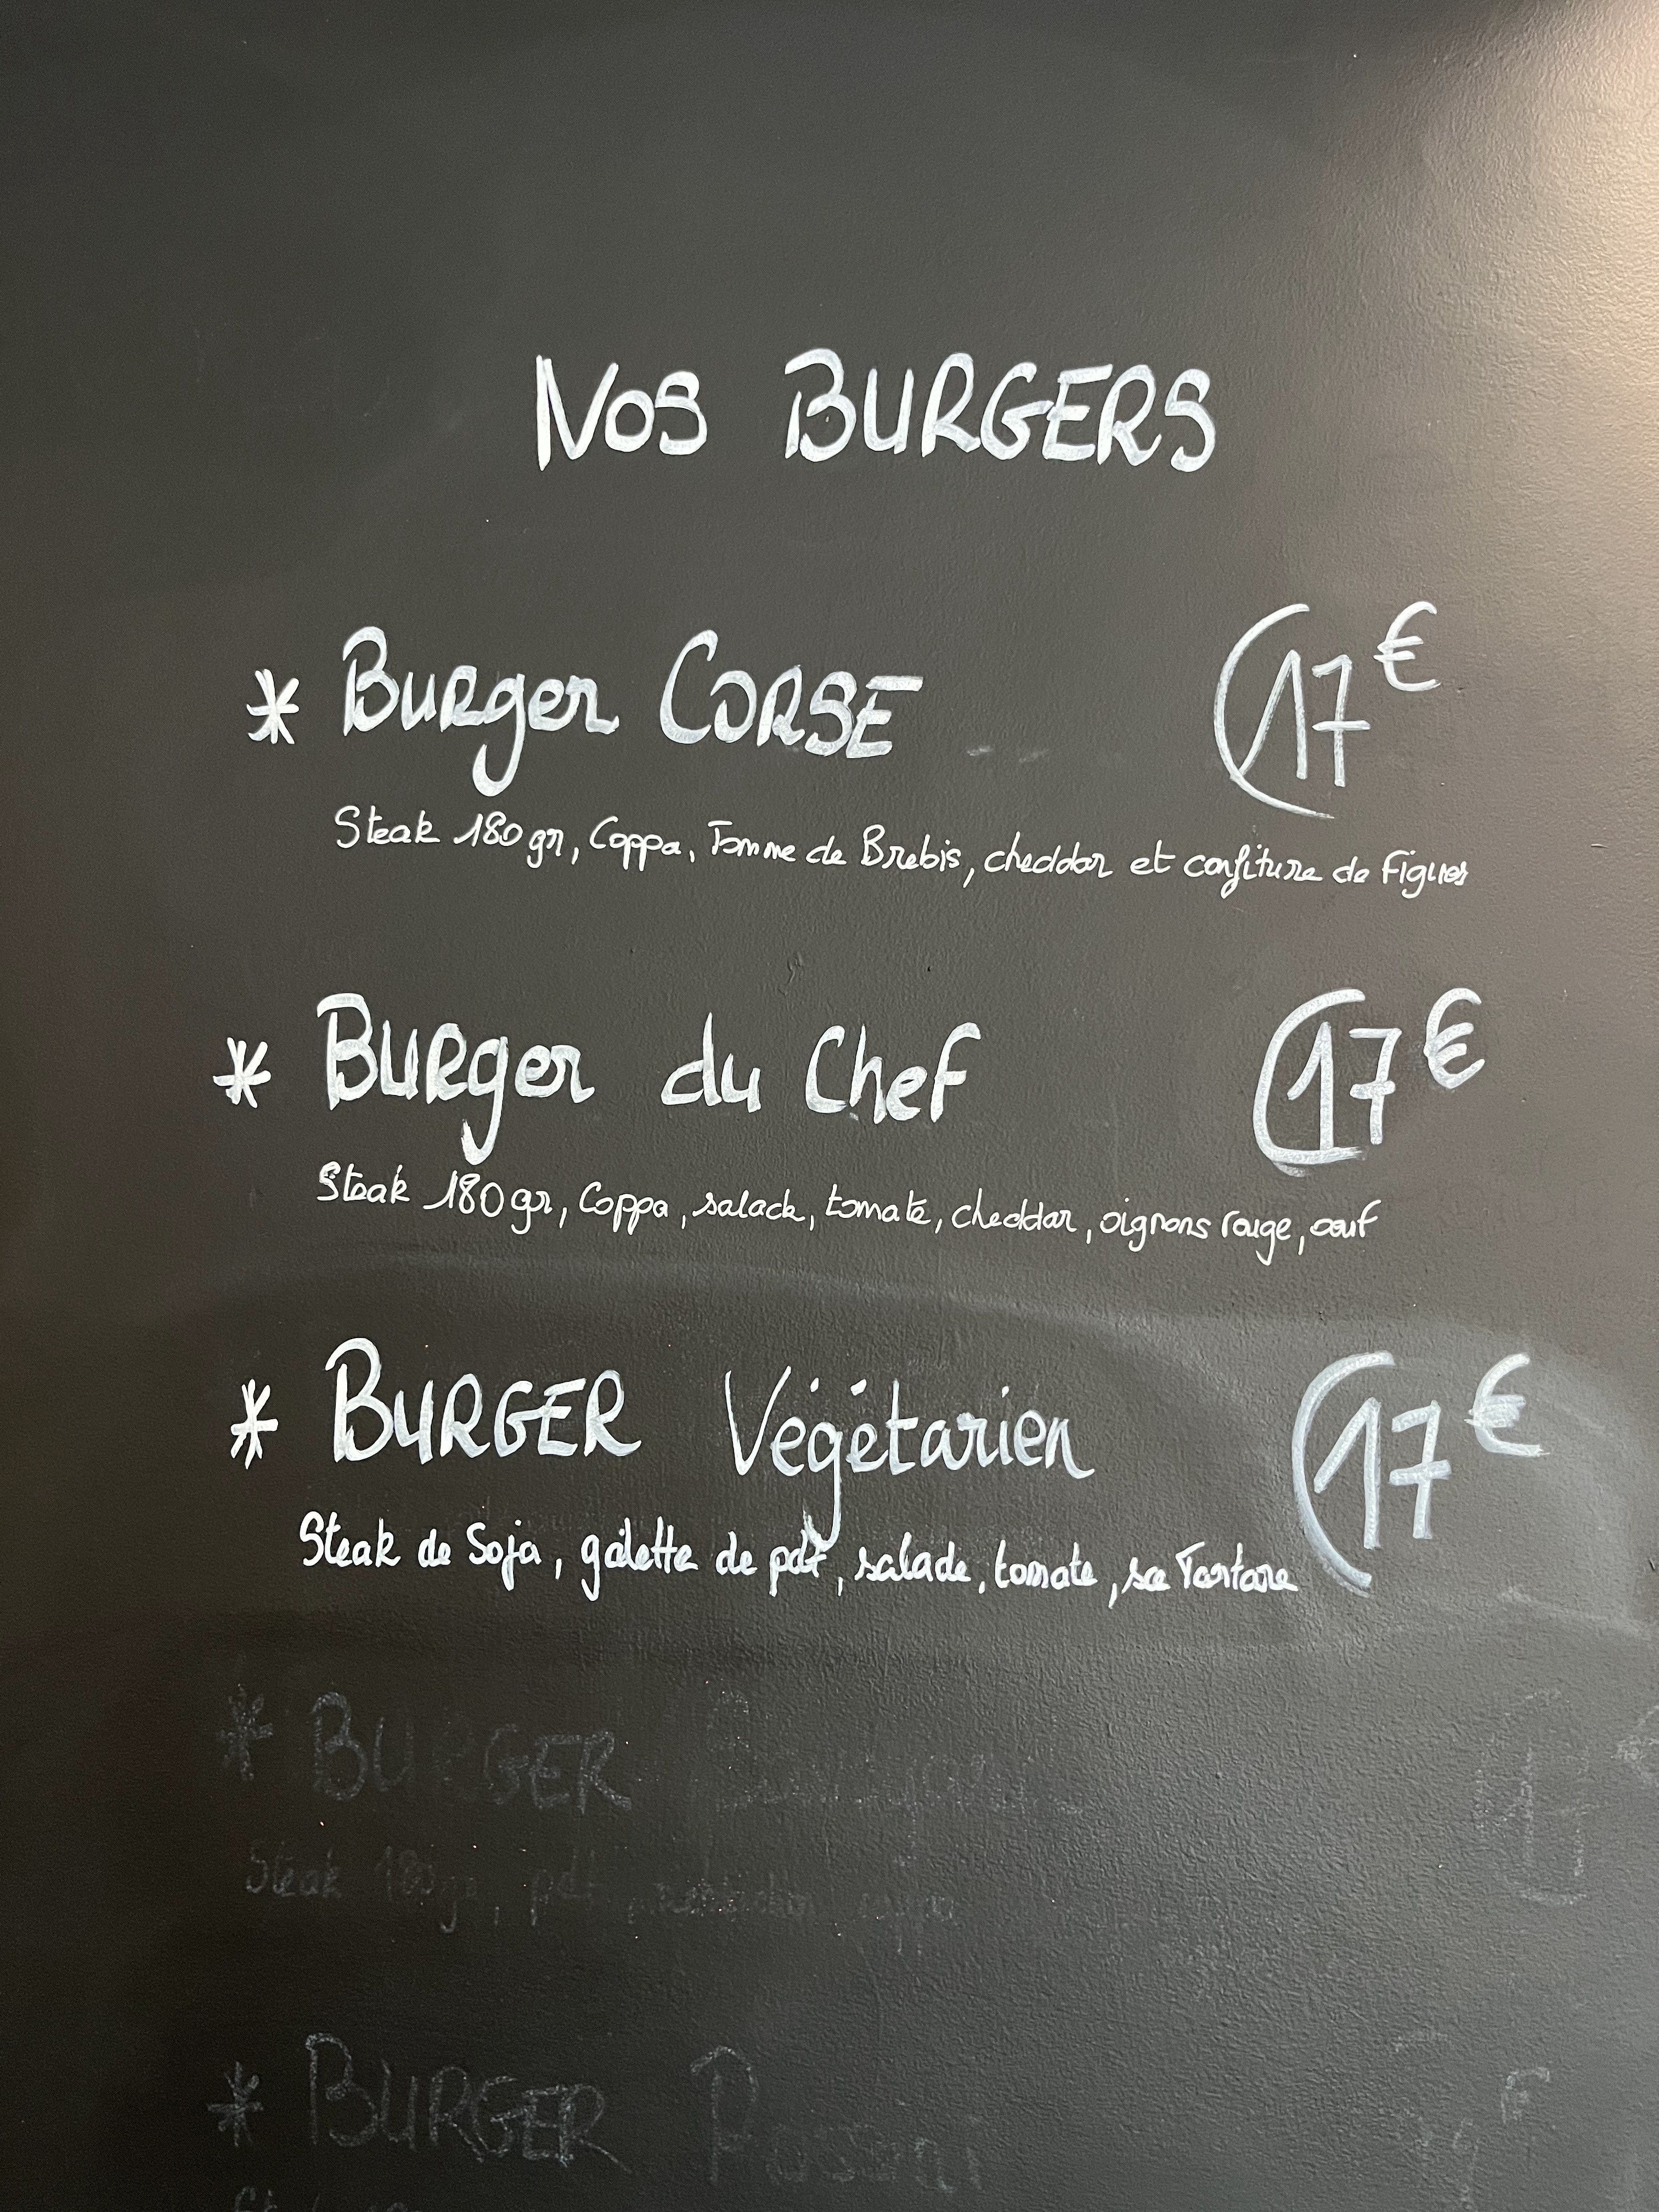 Nos BURGERS
* Burger CORSE 17€
Steak 180gr, Coppa, Tomme de Brebis, cheddar et confiture de Figues
* Burger du Chef 17€
Steak 180gr, Coppa, salade, tomate, cheddar, oignons rouge, oeuf
* BURGER Végétarien 17€
Steak de Soja, galette de pdt, salade, tomate, sce Tartare
* BURGER
Steak 180gr, pdt,
* BURGER Rossini